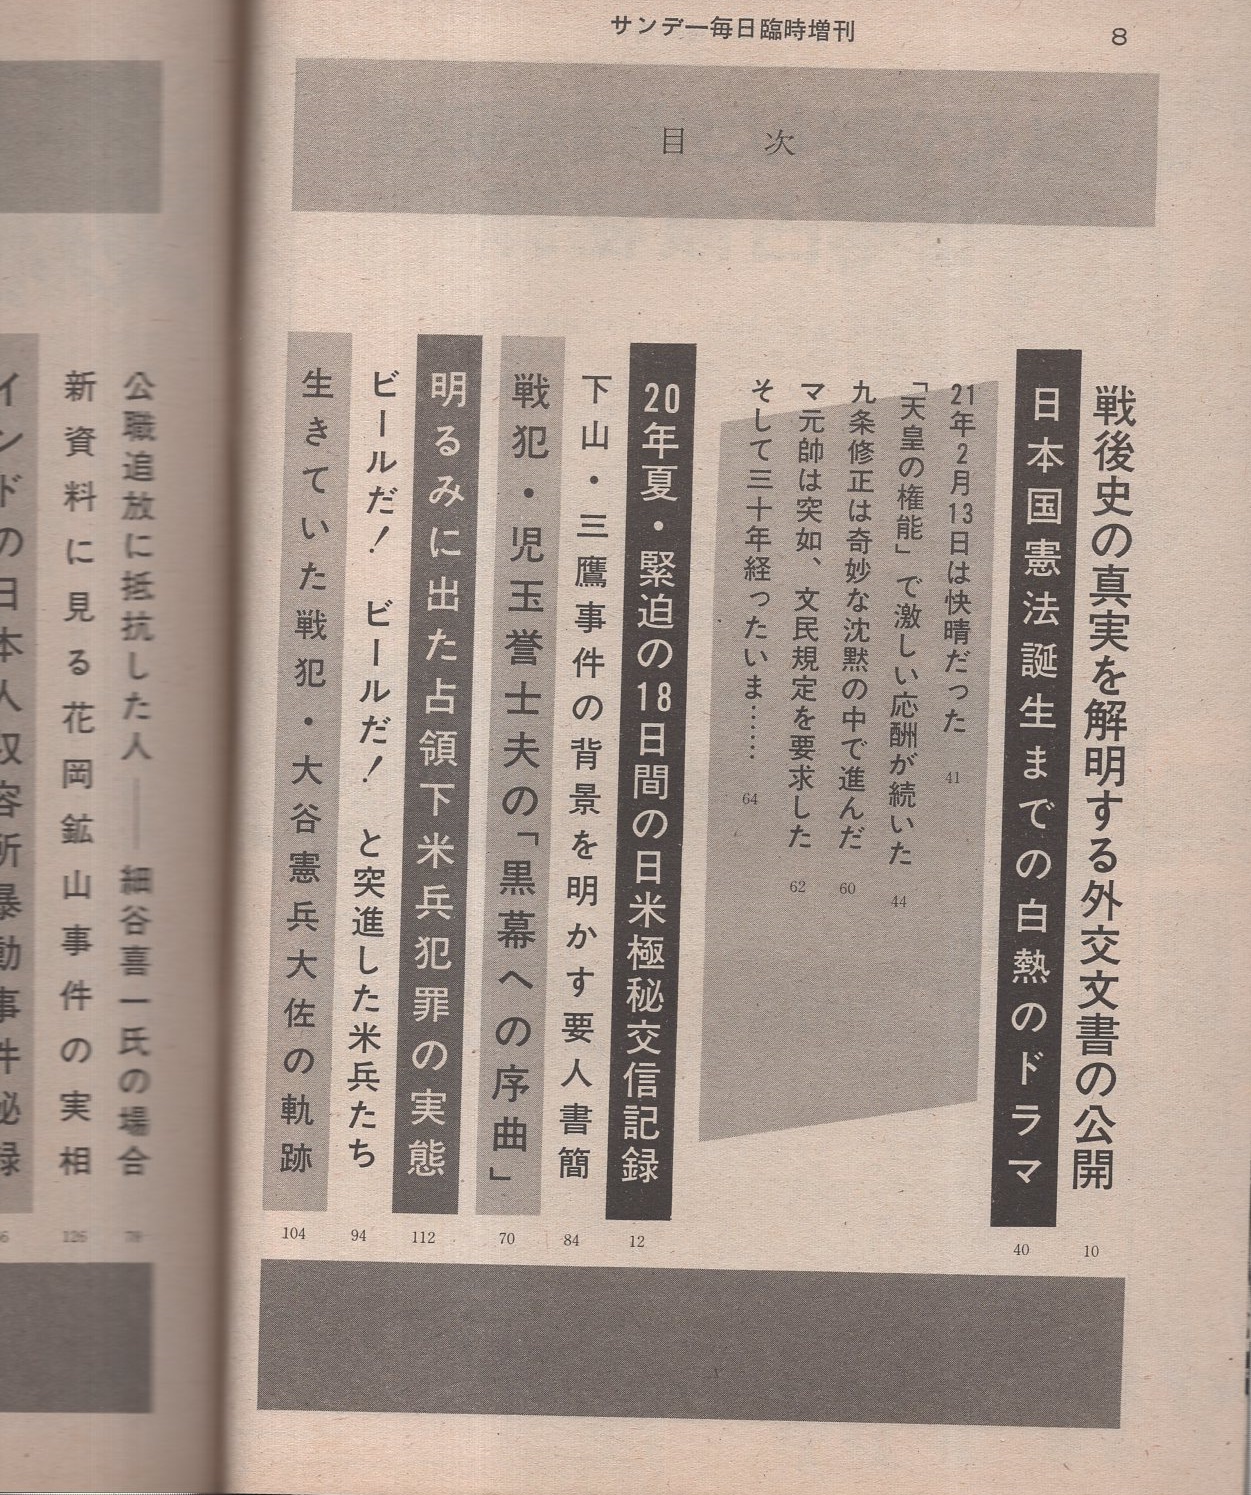 サンデー毎日臨時増刊
8
目次
戦後史の真実を解明する外交文書の公開 10
日本国憲法誕生までの白熱のドラマ 40
21年2月13日は快晴だった 41
「天皇の権能」で激しい応酬が続いた 44
九条修正は奇妙な沈黙の中で進んだ 60
マ元帥は突如、文民規定を要求した 62
そして三十年経ったいま…… 64
20年夏・緊迫の18日間の日米極秘交信記録 12
下山・三鷹事件の背景を明かす要人書簡 84
戦犯・児玉誉士夫の「黒幕への序曲」 70
明るみに出た占領下米兵犯罪の実態 112
ビールだ！ビールだ！と突進した米兵たち 94
生きていた戦犯・大谷憲兵大佐の軌跡 104
公職追放に抵抗した人――細谷喜一氏の場合
新資料に見る花岡鉱山事件の実相 126
インドの日本人収容所暴動事件秘録